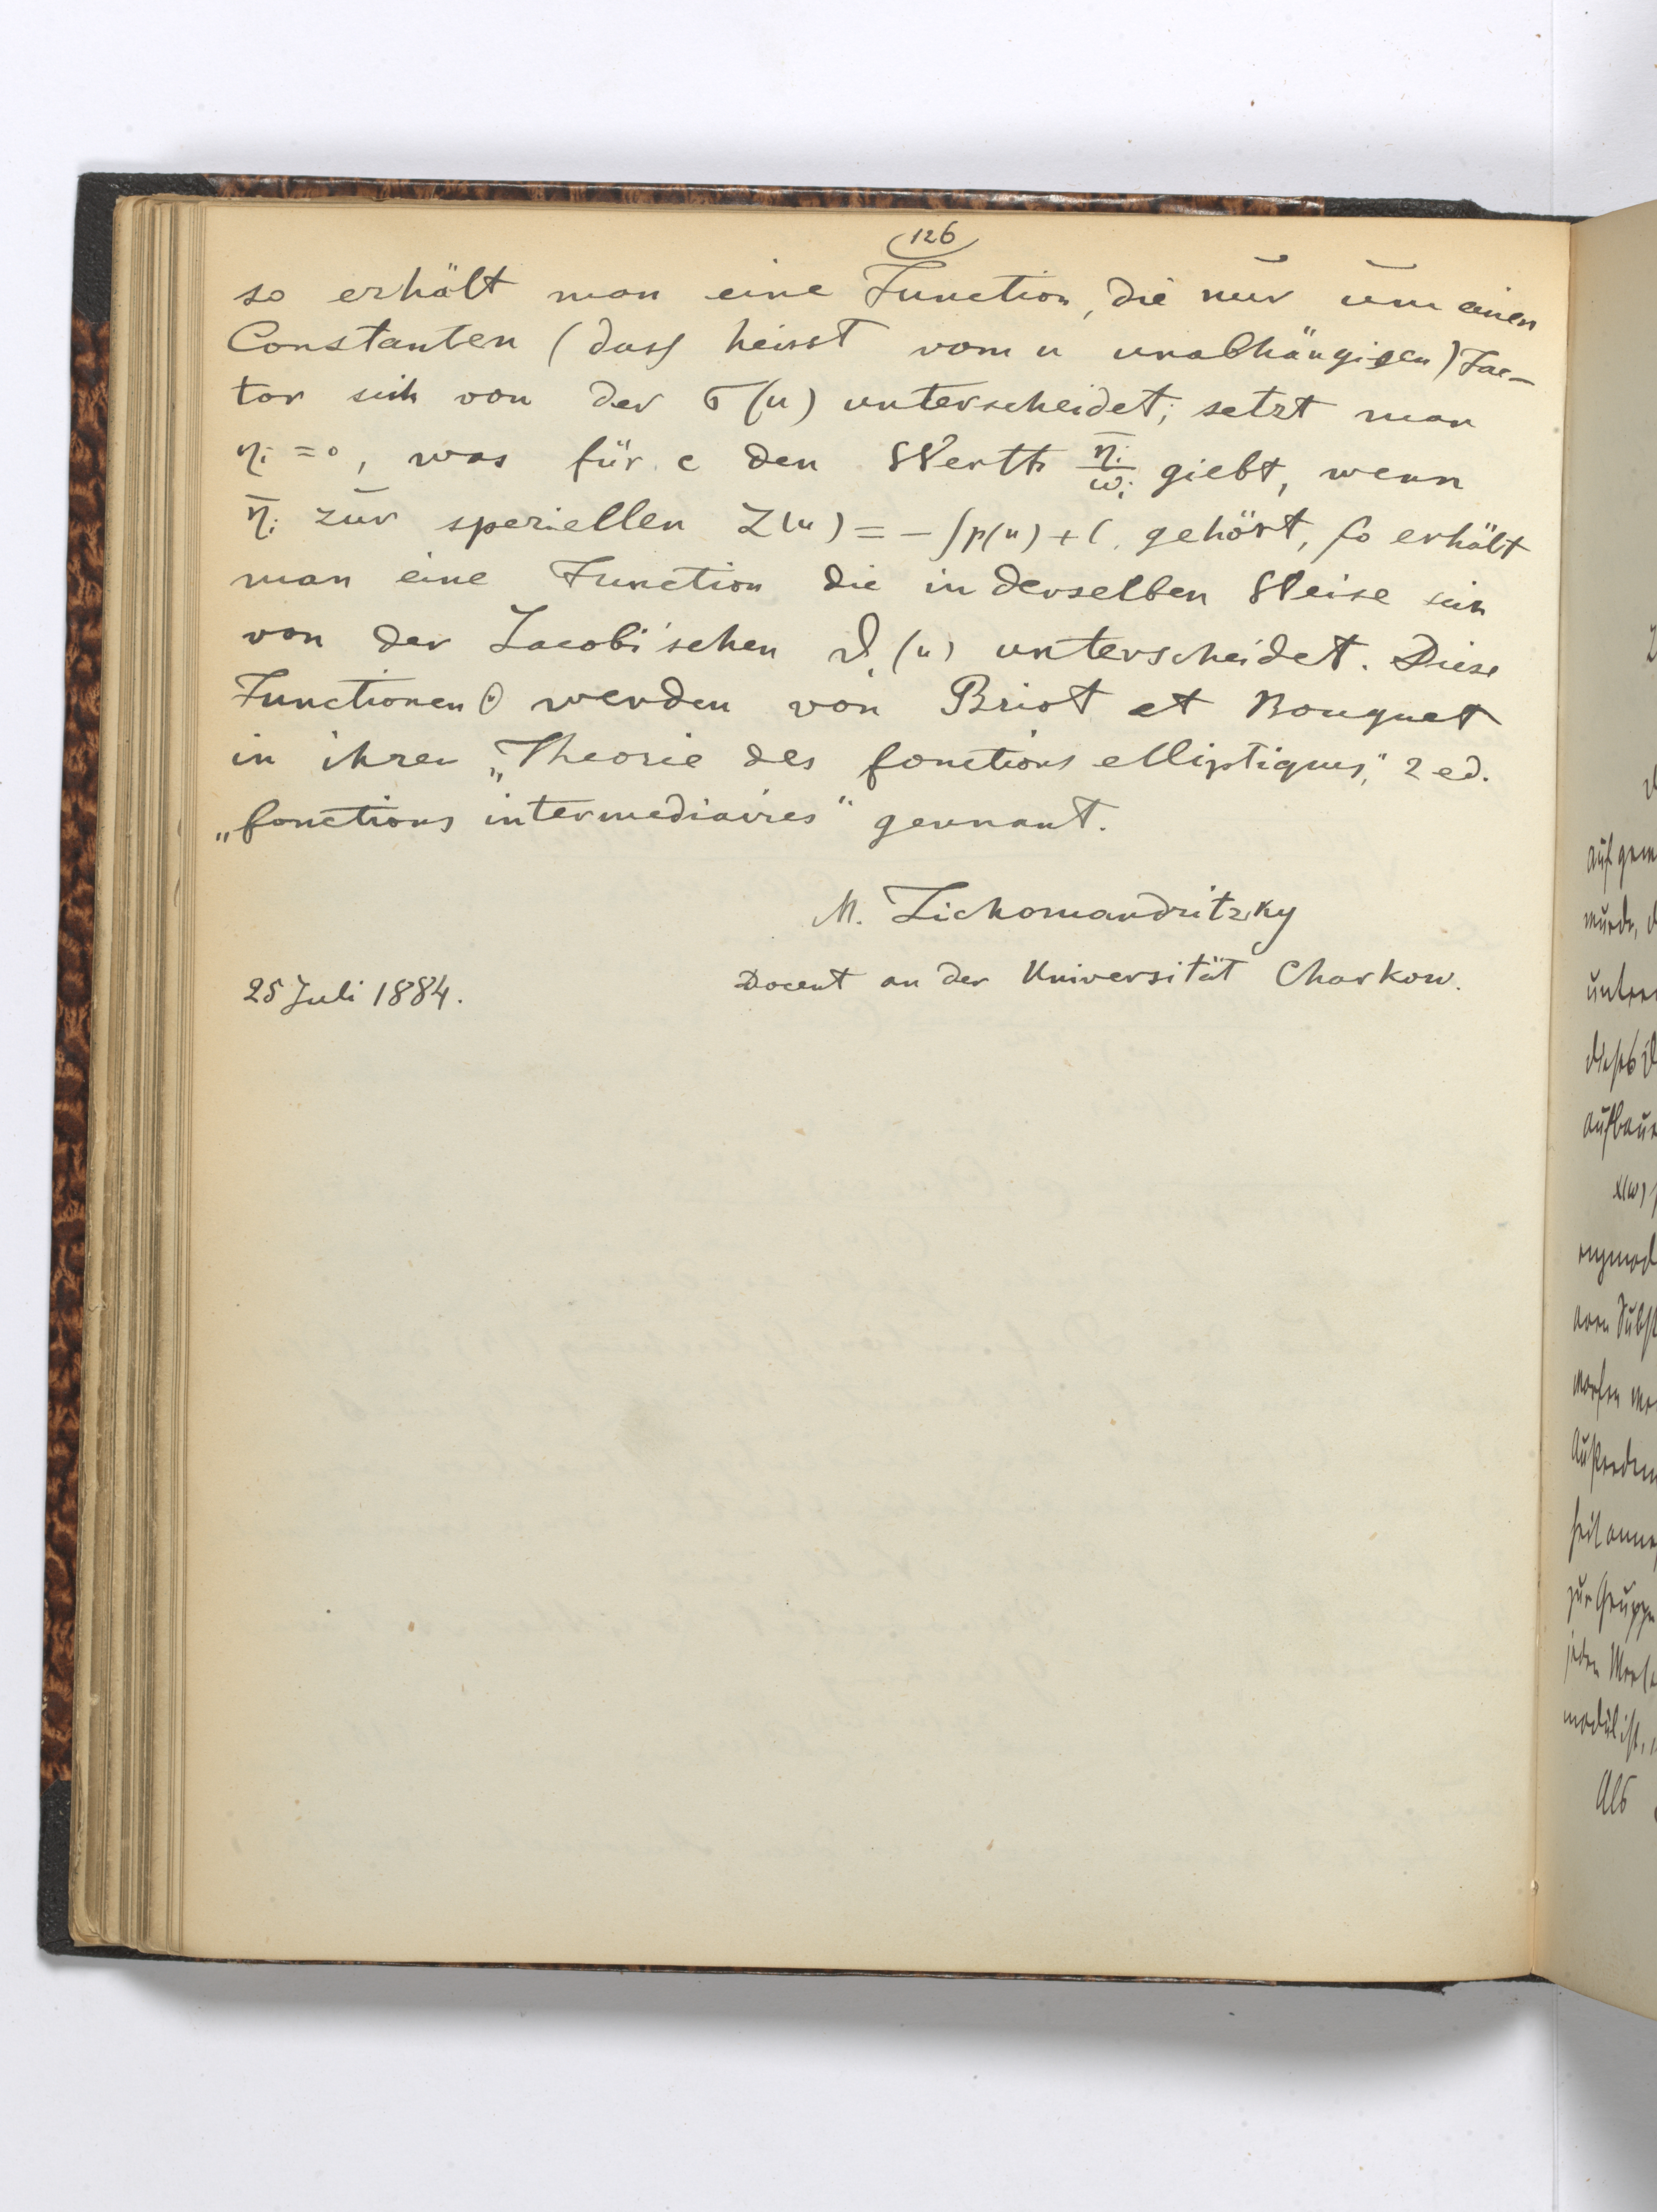 126
so erhält man eine Function, die nur um einen
Constanten (dass heisst vom u unabhängigen) Fac-
tor sich von der σ(u) unterscheidet; setzt man
ηi = 0, was für c den Werth η̄i/ωi giebt, wenn
η̄i zur speziellen Z(u) = - ∫p(u) + C. gehört, so erhält
man eine Function die in derselben Weise sich
von der Jacobi'schen ϑ1(u) unterscheidet. Diese
Functionen werden von Briot et Bouquet
in ihrer „Theorie des fonctions elliptiques," 2 ed.
„fonctions intermediaires" gennant.
M. Tichomandritzky
25 Juli 1884. Docent an der Universität Charkow.
aufgem
wurde, d
unter
dieses
aufbau
x(w)
Als